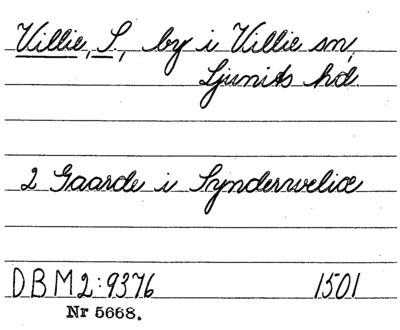 Villie, S., by i Villie sn,
Ljunits hd.
2 Gaarde i Synderweliæ
DBM2:9376 1501
Nr 5668.